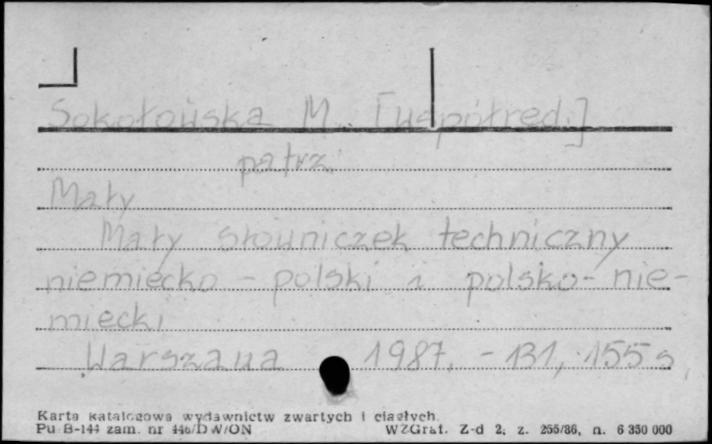 Sokołowska M. [współred.]
patrz
Mały
Mały słowniczek techniczny
niemiecko-polski i polsko-nie-
miecki
Warszawa 1987. - 131, 155 s.
Karta katalogowa wydawnictw zwartych i ciągłych.
Pu B-144 zam. nr 446/DW/ON WZGraf. Z-d 2, z. 255/86, n. 6 350 000